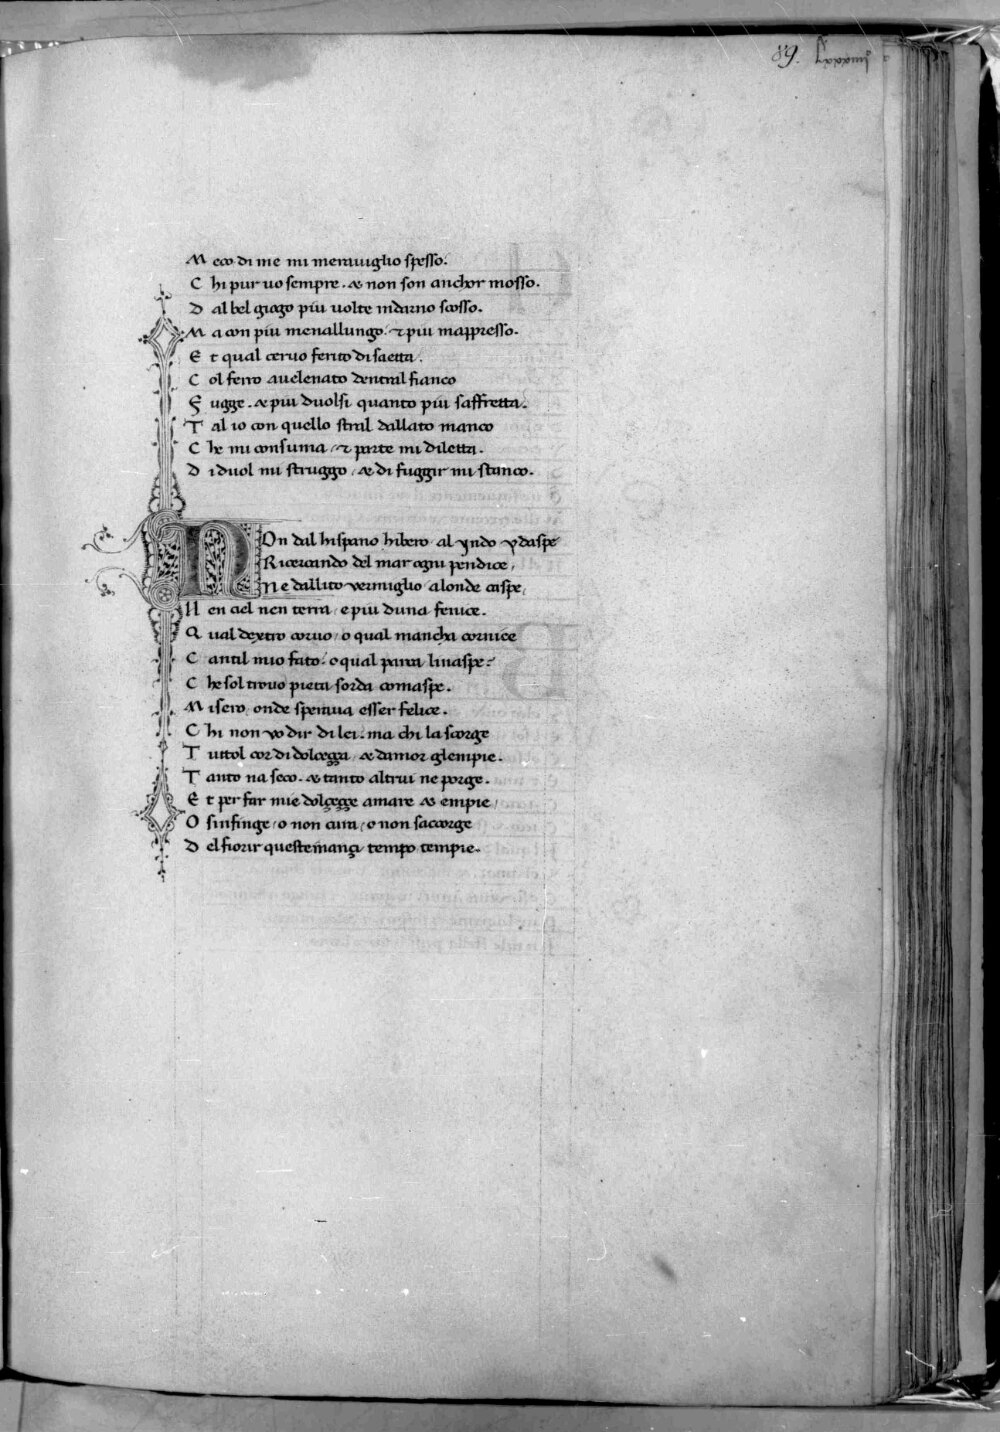 89.
M eco di me mi meraviglio spesso.
C hi pur uo sempre. & non son anchor mosso.
D al bel giogo piu uolte indarno scosso.
M a con piu menallungo. & piu mappresso.
E t qual ceruo ferito di saetta.
C ol ferro auelenato dentral fianco
F ugge. & piu duolsi quanto piu saffretta.
T al io con quello stral dallato manco
C he mi consuma, & parte mi diletta.
D i duol mi struggo, & di fuggir mi stanco.
NOn dal hispano hibero al yndo ydaspe
R icercando del mar ogni pendice,
N e dallito vermiglio alonde caspe,
N en ciel nen terra, e piu duna fenice.
Q ual dextro coruo, o qual mancha cornice
C antil mio fato. o qual parca linaspe?
C he sol trouo pieta sorda comaspe.
M isero, onde speraua esser felice.
C hi non vo dir di lei. ma chi la scorge
T uttol cor di dolceçça, & damor glempie.
T anto na seco. & tanto altrui ne porge.
E t per far mie dolçeçe amare & empie,
O sinfinge, o non cura, o non saccorge
D el fiorir queste inançi tempo tempie.